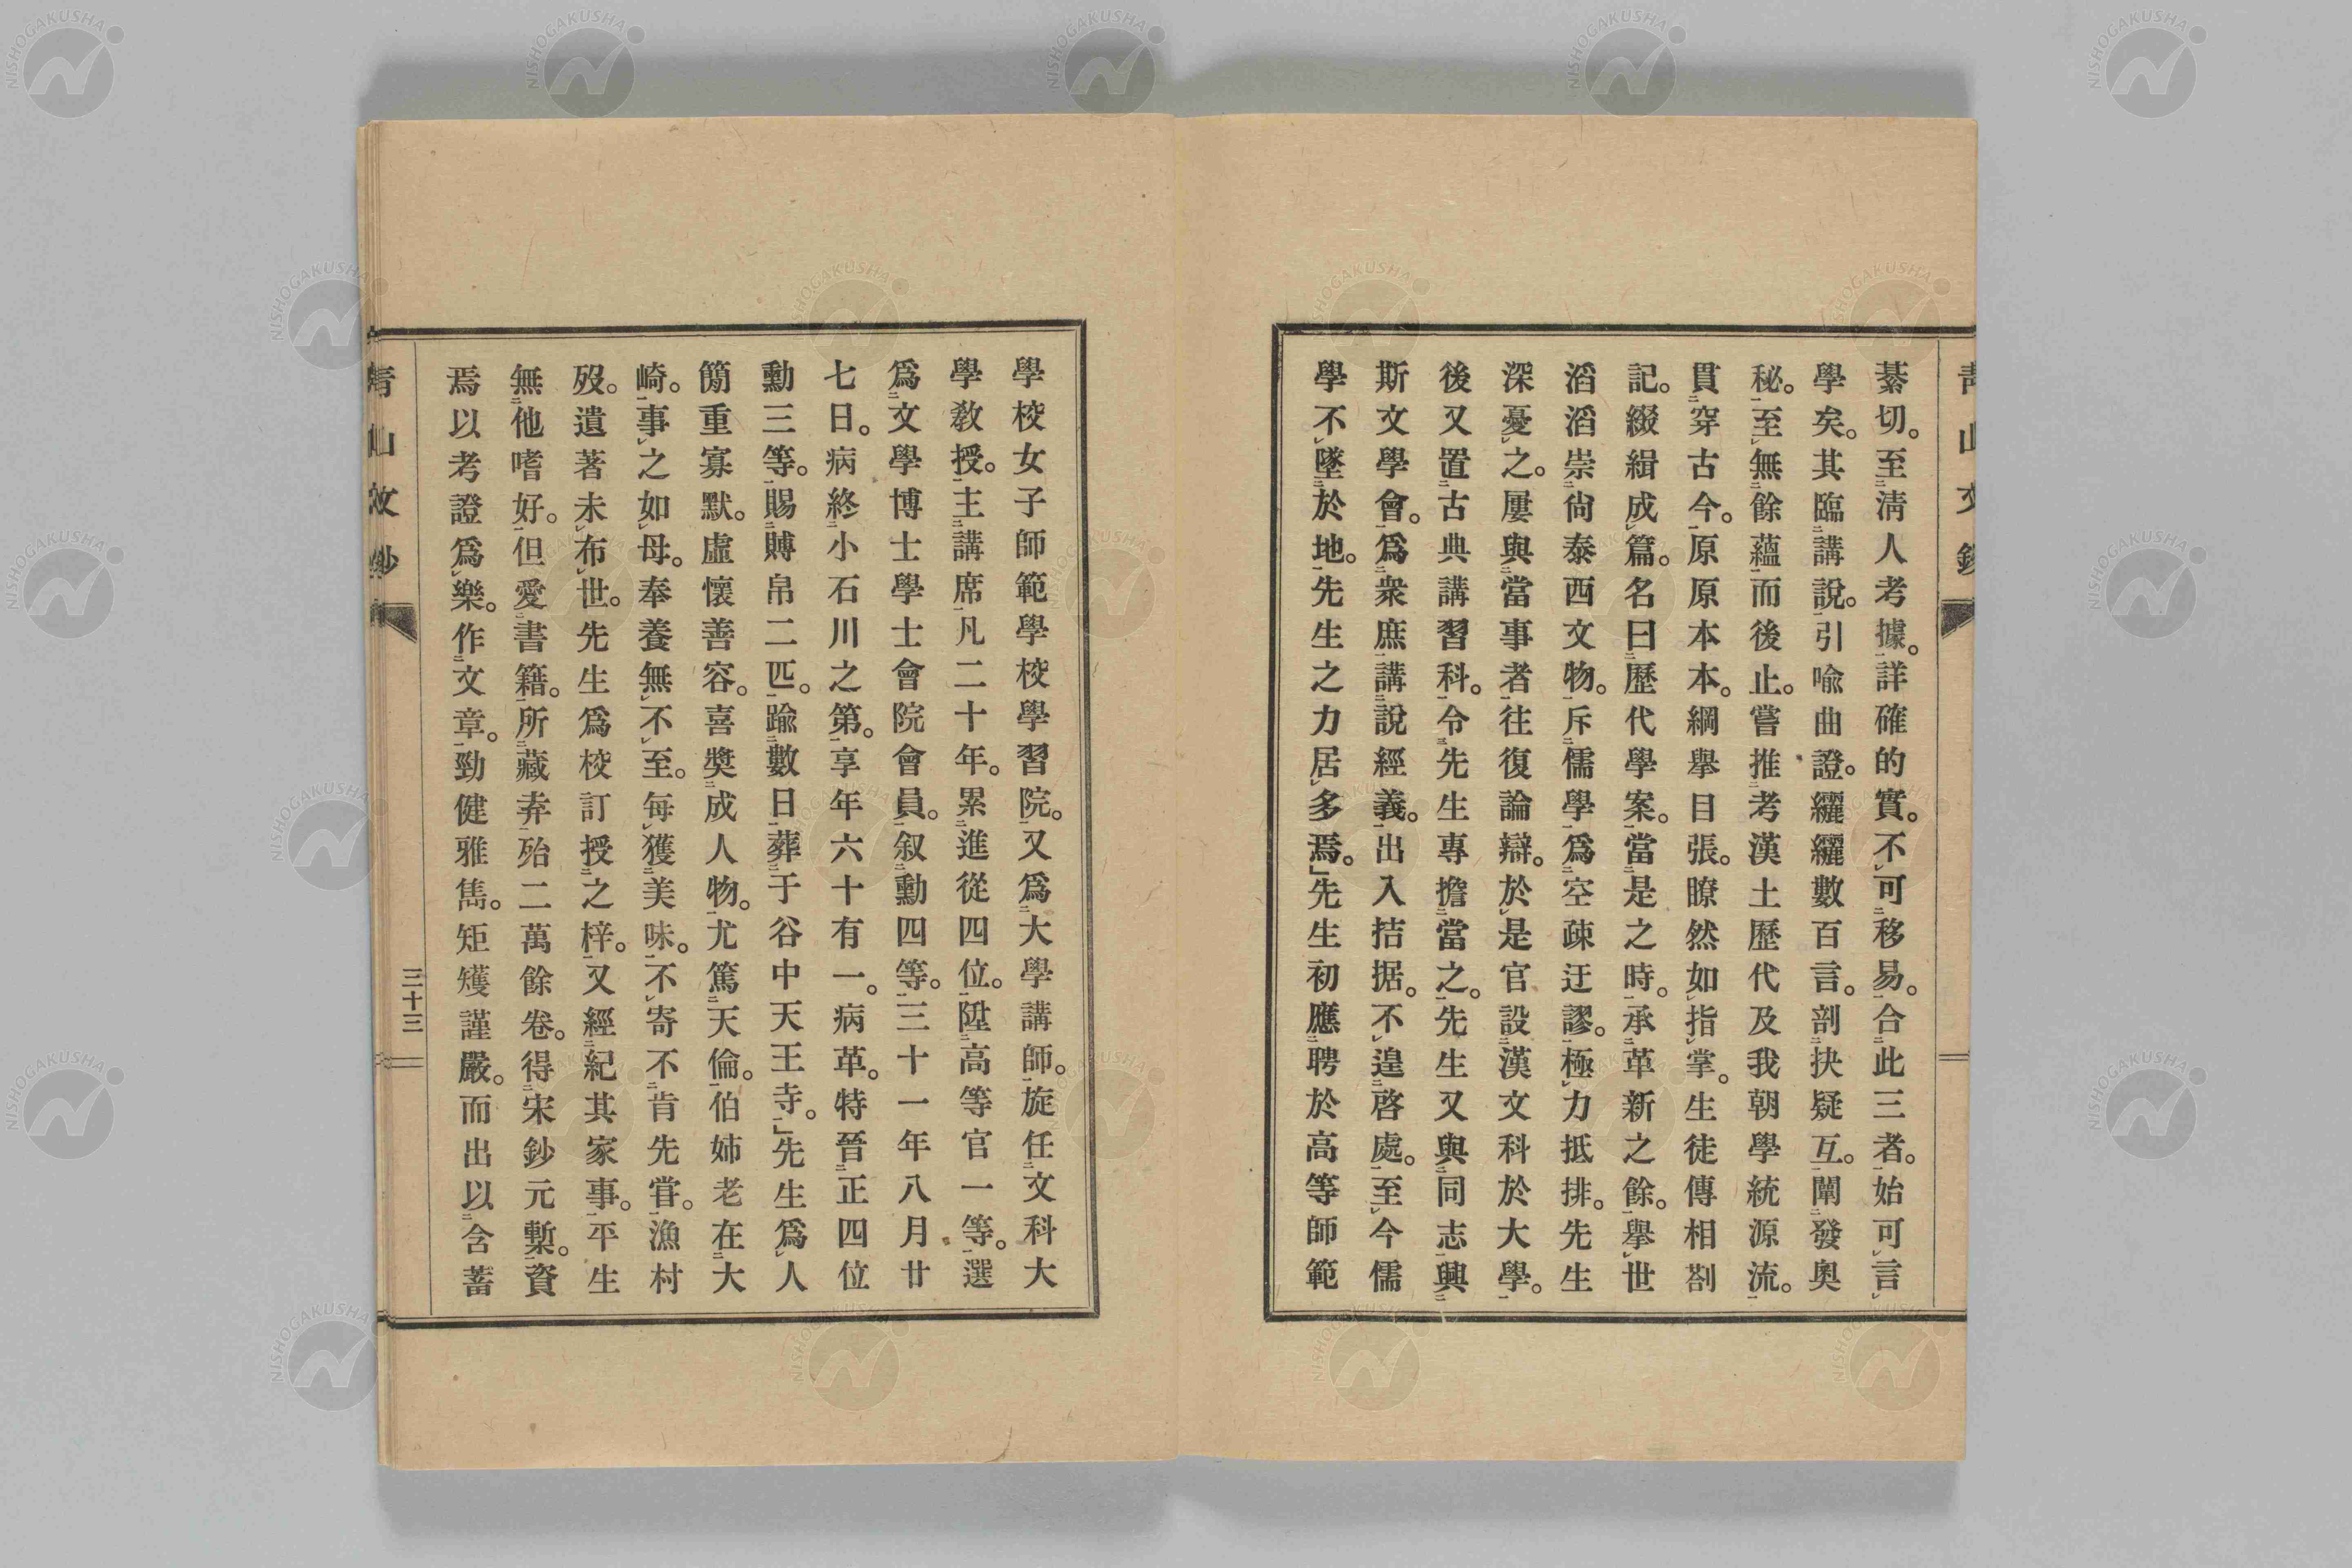 綦切。至淸人考據。詳確的實。不可移易。合此三者。始可言
學矣。其臨講說。引喩曲證。纚纚數百言。剖抉疑互。闡發奧
秘。至無餘蘊而後止。嘗推考漢土歷代及我朝學統源流。
貫穿古今。原原本本。綱擧目張。瞭然如指掌。生徒傳相劄
記。綴緝成篇。名曰歷代學案。當是之時。承革新之餘。擧世
滔滔崇尙泰西文物。斥儒學爲空疎迂謬。極力抵排。先生
深憂之。屢與當事者往復論辯。於是官設漢文科於大學。
後又置古典講習科。令先生專擔當之。先生又與同志興
斯文學會。爲衆庶講說經義。出入拮据。不遑啓處。至今儒
學不墜於地。先生之力居多焉。」先生初應聘於高等師範
學校女子師範學校學習院。又爲大學講師。旋任文科大
學敎授。主講席凡二十年。累進從四位。陞高等官一等。選
爲文學博士學士會院會員。叙勳四等。三十一年八月廿
七日。病終小石川之第。享年六十有一。病革。特晉正四位
勳三等。賜賻帛二匹。踰數日葬于谷中天王寺。」先生爲人
簡重寡默。虛懷善容。喜奬成人物。尤篤天倫。伯姉老在大
崎。事之如母。奉養無不至。每獲美味。不寄不肯先甞。漁村
歿。遺著未布世。先生爲校訂授之梓。又經紀其家事。平生
無他嗜好。但愛書籍。所藏弆殆二萬餘卷。得宋鈔元槧。資
焉以考證爲樂。作文章。勁健雅雋。矩矱謹嚴。而出以含蓄
靑山文鈔
三十三
NISHOGAKUSHA